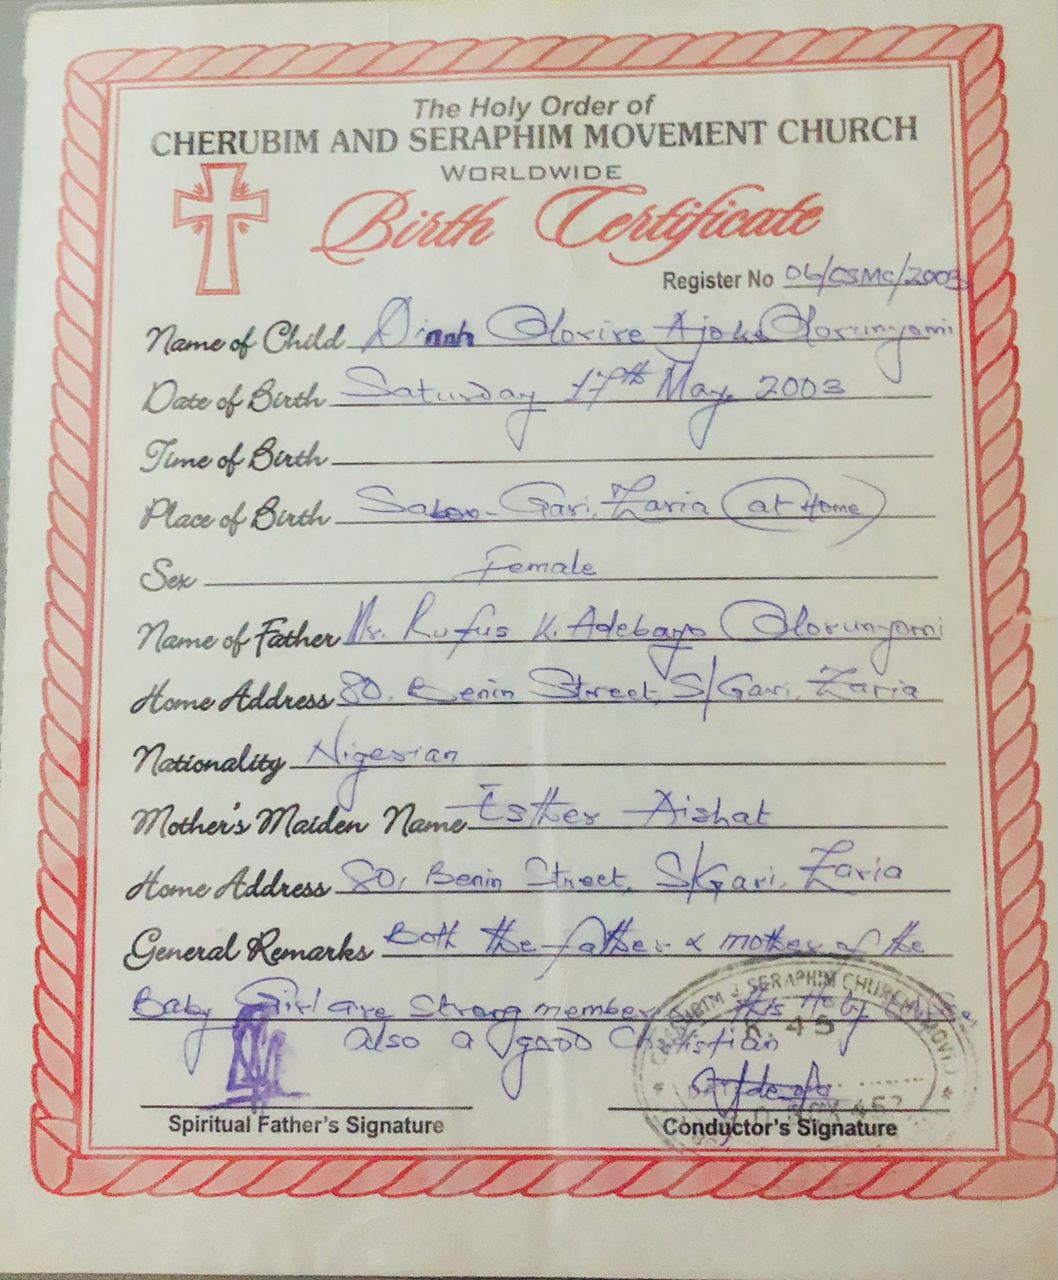 The Holy Order of
CHERUBIM AND SERAPHIM MOVEMENT CHURCH
WORLDWIDE
Birth Certificate
Register No 06/CSMC/2003
Name of Child Dinah Olorire Ajoke Olorunyomi
Date of Birth Saturday 17th May, 2003
Time of Birth
Place of Birth Sabon-Gari, Zaria (at Home)
Sex Female
Name of Father Mr. Rufus K. Adebayo Olorunyomi
Home Address 80, Benin Street, S/Gari, Zaria
Nationality Nigerian
Mother's Maiden Name Esther Aishat
Home Address 80, Benin Street, S/Gari, Zaria
General Remarks Both the father & mother of the
Baby Girl are Strong member this Holy
also a good Christian
CHERUBIM & SERAPHIM CHURCH MOVT
K. 45
Spiritual Father's Signature
Conductor's Signature